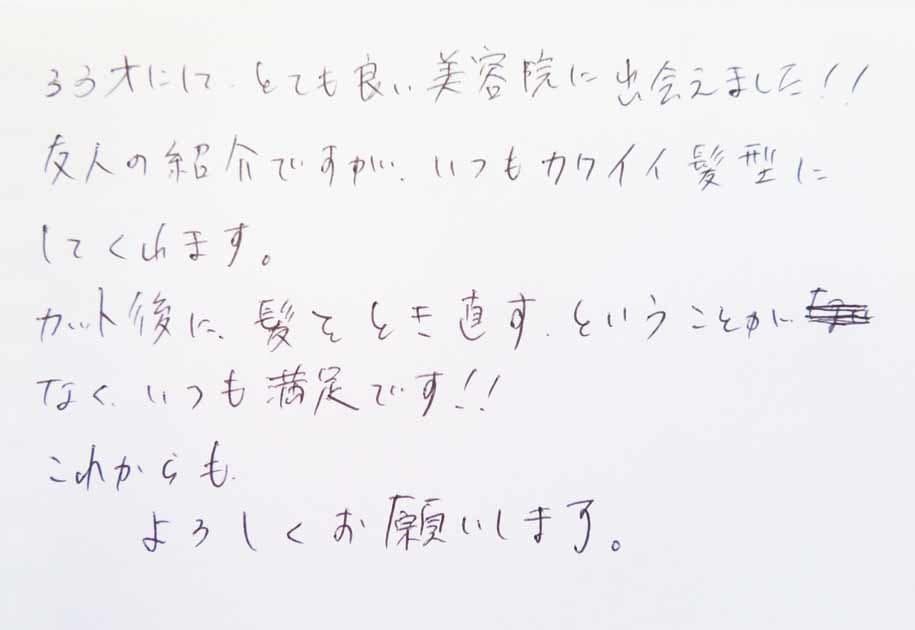 33才にして、とても良い美容院に出会えました!!
友人の紹介ですが、いつもカワイイ髪型に
してくれます。
カット後に、髪をとき直す、ということが
なく、いつも満足です!!
これからも、
よろしくお願いします。